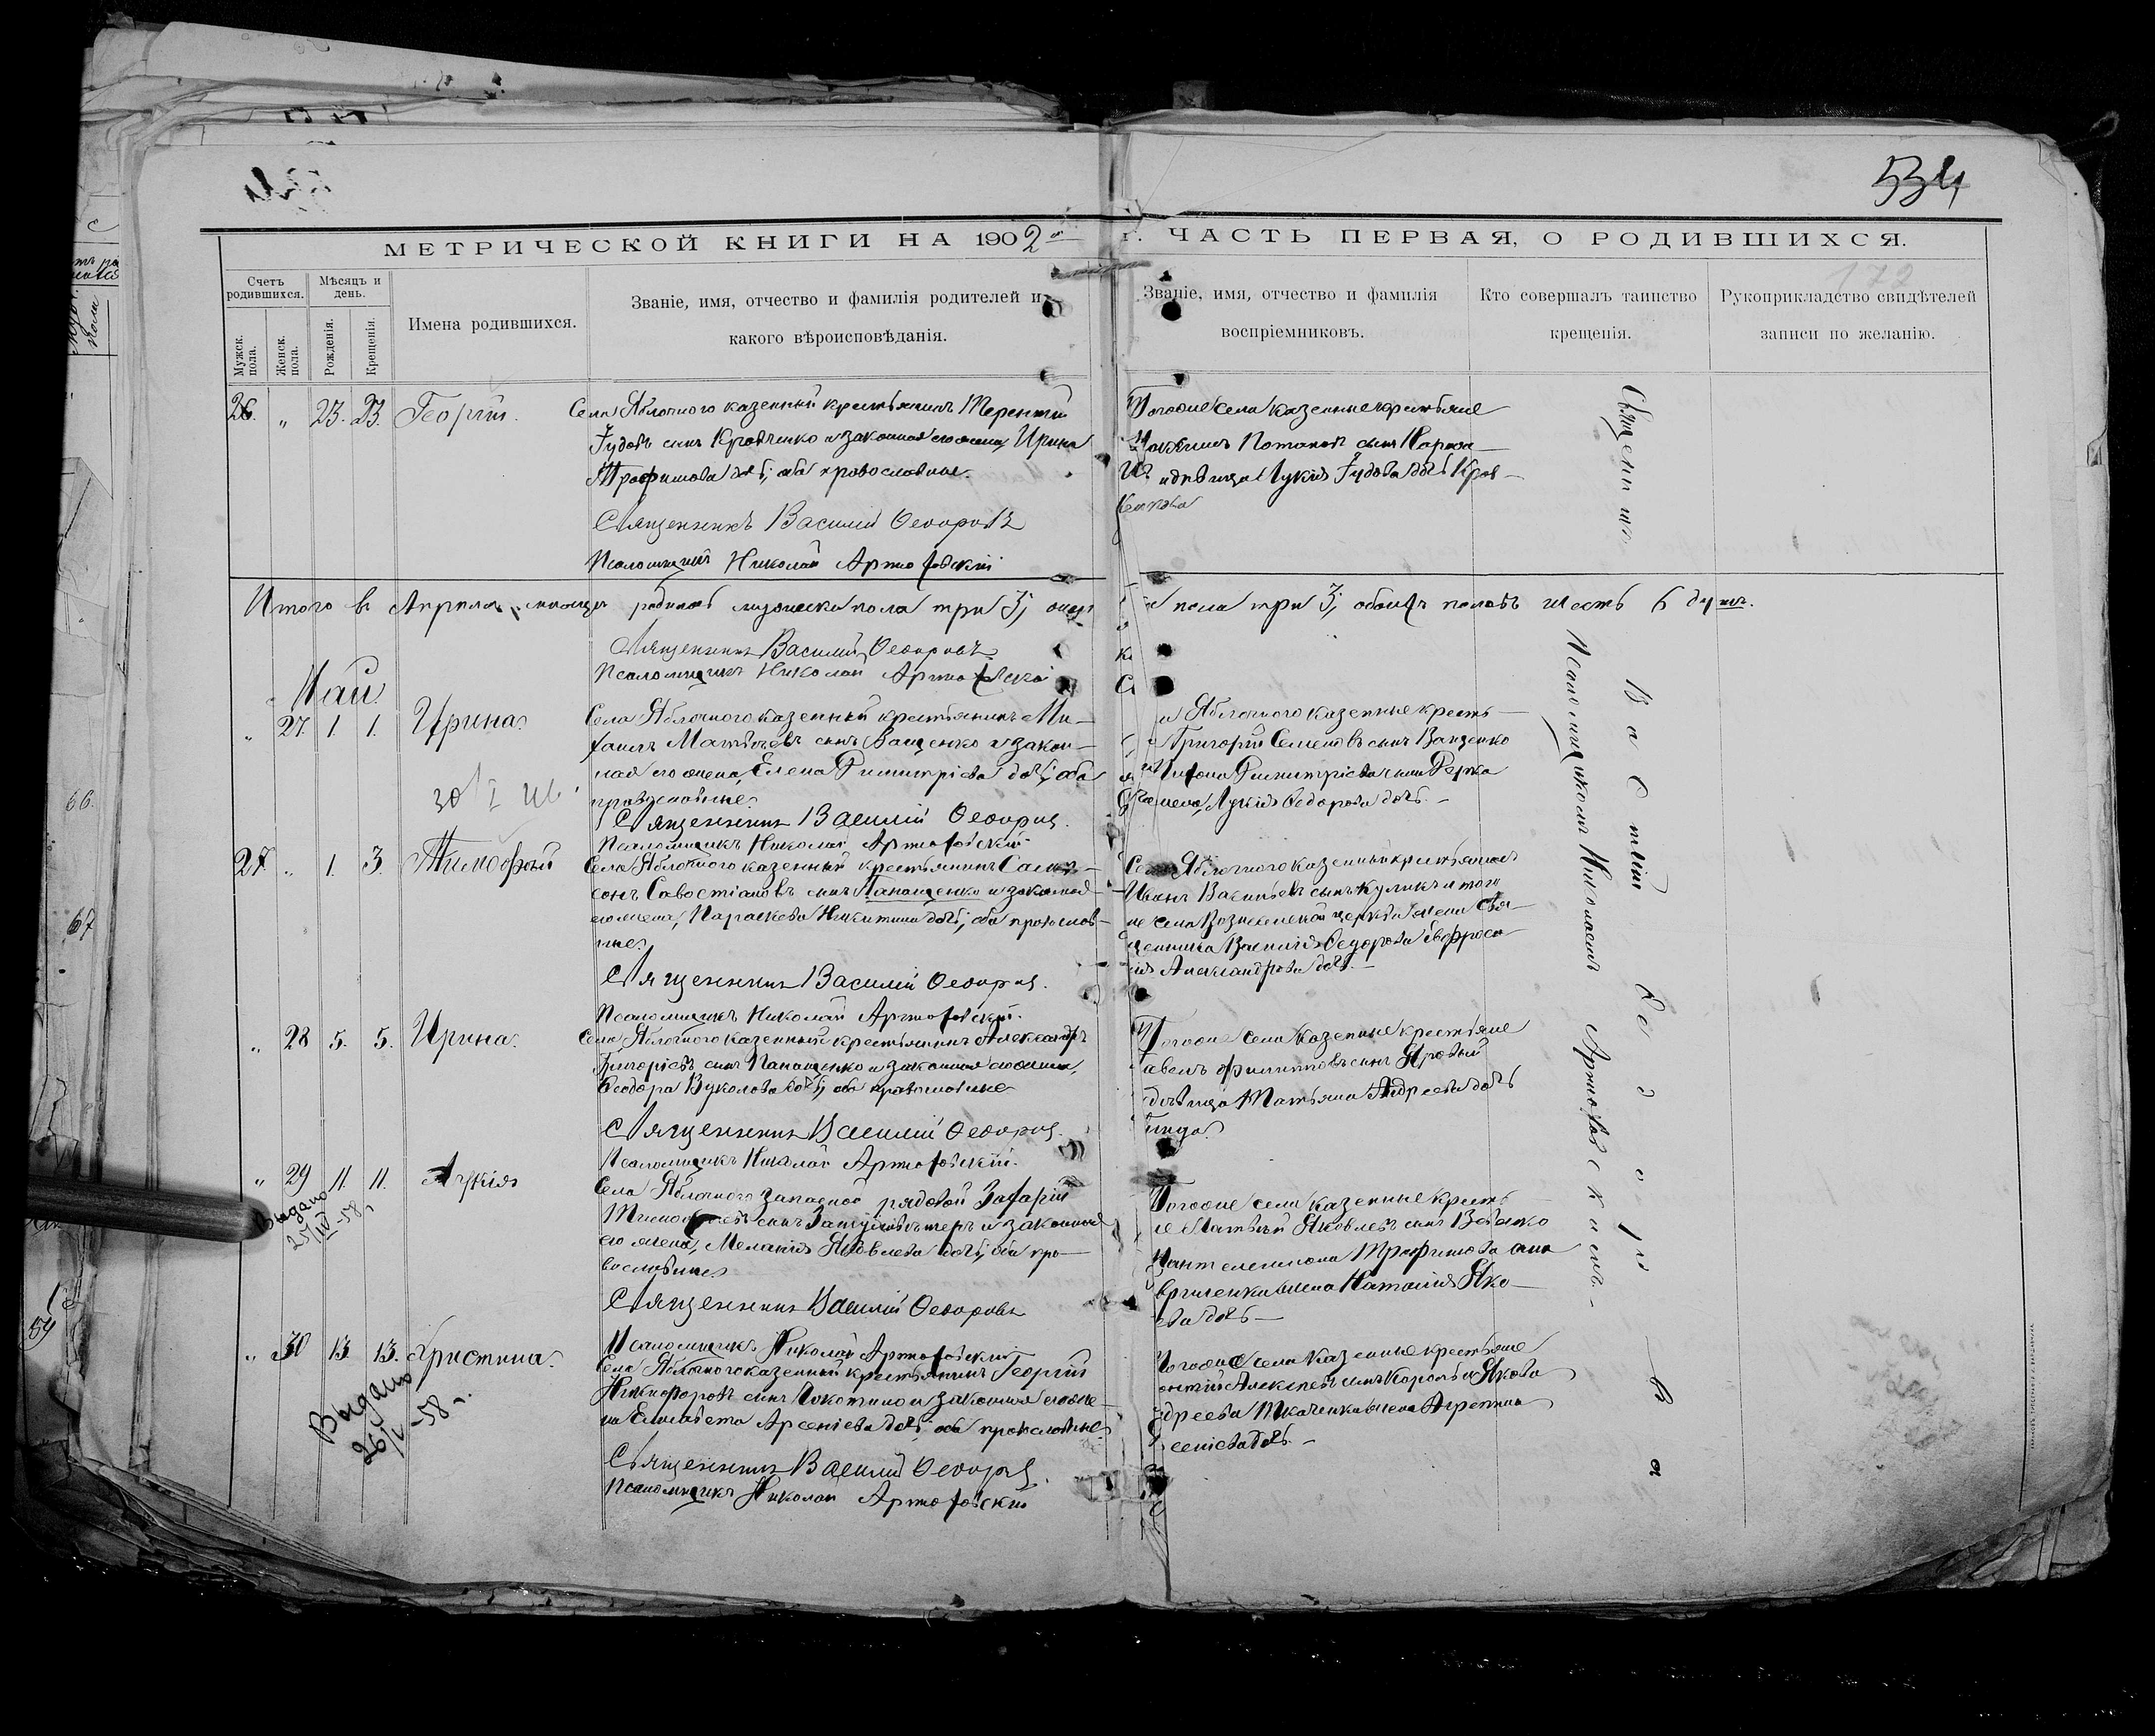 534
МЕТРИЧЕСКОЙ КНИГИ НА 1902 г. ЧАСТЬ ПЕРВАЯ, О РОДИВШИХСЯ.
172
Счетъ родившихся.
Мѣсяцъ и день.
Имена родившихся.
Званіе, имя, отчество и фамилія родителей и
какого вѣроисповѣданія.
Званіе, имя, отчество и фамилія
воспріемниковъ.
Кто совершалъ таинство
крещенія.
Рукоприкладство свидѣтелей
записи по желанію.
Мужск. пола.
Женск. пола.
Рожденія.
Крещенія.
26. " 23. 23. Георгій.
Села Яблочного казенный крестьянинъ Терентій
Іудовъ сынъ Кравченко и законная его жена, Ирина
Трофимова дочь; оба православные.
Священникъ Василій Ѳеодоровъ
Псаломщикъ Николай Артюховскій
Тогоже села казенные крестьяне
Потаповъ сынъ
дѣвица Лукія Іудова дочь Крав-
ченкова
Итого въ Апрѣлѣ мѣсяцѣ родилось мужеска пола три 3, женс
пола три 3, обоихъ половъ шесть 6 душъ.
Священникъ Василій Ѳеодоровъ
Псаломщикъ Николай Артюховскій
Май.
" 27. 1. 1. Ирина.
Села Яблочного казенный крестьянинъ Ми-
хаилъ Матвѣевъ сынъ Ващенко и закон-
ная его жена, Елена Димитріева дочь; оба
православные.
Священникъ Василій Ѳеодоровъ
Псаломщикъ Николай Артюховскій
Яблочного казенные кресть-
Григорій Семеновъ сынъ Ващенко
Димитріева сына
жена, Лукія Ѳедорова дочь.
27. " 1. 3. Тимоѳей
Села Яблочного казенный крестьянинъ Самп-
сонъ Савостіановъ сынъ Панащенко и законная
его жена, Параскева Никитина дочь; оба православ-
ные.
Священникъ Василій Ѳеодоровъ.
Псаломщикъ Николай Артюховскій.
Села Яблочного казенный крестьянинъ
Иванъ Васильевъ сынъ Куликъ и того
же села Вознесенской церкви жена свя-
щенника Василія Ѳедорова Евфроси-
нія Александрова дочь.
" 28 5. 5. Ирина.
Села Яблочного казенный крестьянинъ Александръ
Григорьевъ сынъ Панащенко и законная его жена,
Ѳеодора Вуколова дочь; оба православные
Священникъ Василій Ѳеодоровъ.
Псаломщикъ Николай Артюховскій.
Тогоже села казенные крестьяне
Павелъ Филипповъ сынъ Яровый
дѣвица Татьяна Андреева дочь
" 29 11. 11. Лукія
Выдано
25/IV-58 г.
Села Яблочного запасной рядовой Захарій
Тимоѳеевъ сынъ и законная
его жена, Меланія Яковлева дочь; оба пра-
вославные.
Священникъ Василій Ѳеодоровъ
Псаломщикъ Николай Артюховскій
Тогоже села казенные кресть-
не Матвѣй Яковлевъ сынъ
Пантелеимона Трофимова сына
жена Наталія Яко-
влева дочь
" 30 13 13. Христина.
Выдано
26/V-58 г.
Села Яблочного казенный крестьянинъ Георгій
Никифоровъ сынъ и законная его же-
на Елисавета Арсеніева дочь; оба православные.
Священникъ Василій Ѳеодоровъ.
Псаломщикъ Николай Артюховскій
Тогоже села казенные крестьяне
Алексѣевъ сынъ Король и Якова
Андреева Ткаченка жена Агрепина
Арсеніева дочь.
Священникъ
Василій Ѳедоровъ
Псаломщикомъ Николаемъ Артюховскимъ.